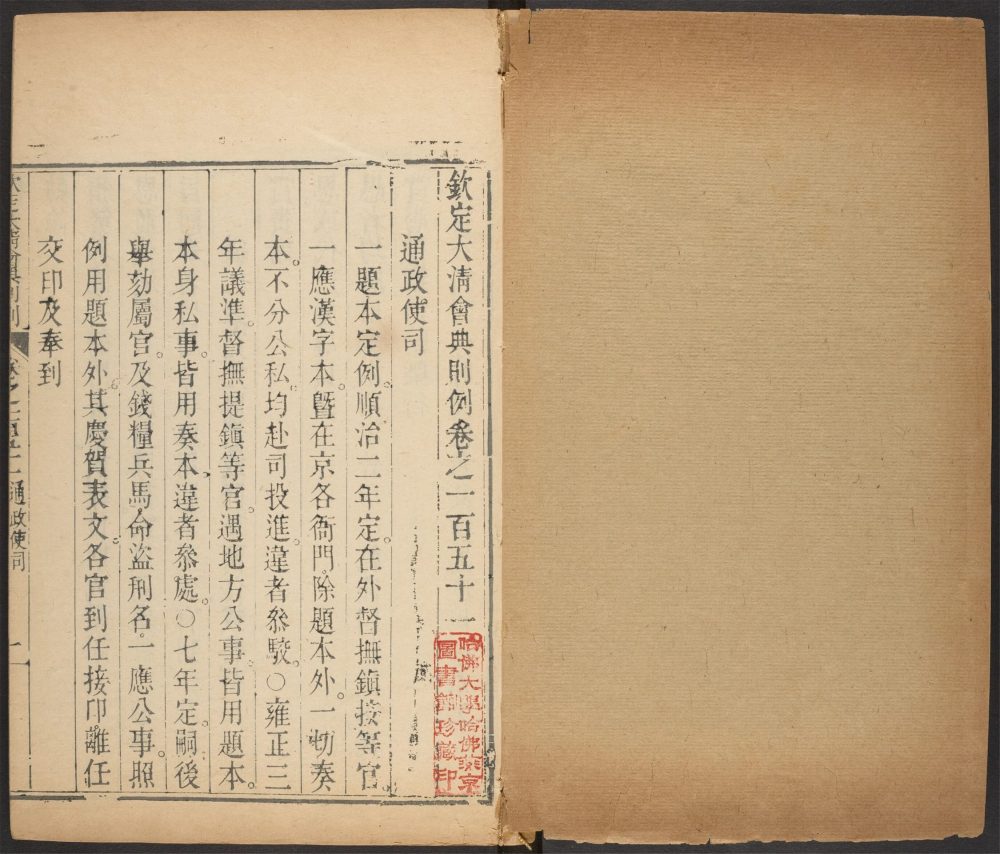 欽定大清會典則例卷之一百五十一
哈佛大學哈佛燕京
圖書館珍藏印
通政使司
一題本定例。順治二年定。在外督撫鎮按等官。
一應漢字本。曁在京各衙門。除題本外。一切奏
本。不分公私。均赴司投進。違者叅駮。○雍正三
年議準。督撫提鎮等官。遇地方公事。皆用題本。
本身私事。皆用奏本。違者叅處。○七年定。嗣後
舉劾屬官。及錢糧兵馬。命盜刑名。一應公事。照
例用題本外。其慶賀表文。各官到任接印離任
交印及奉到
通政使司